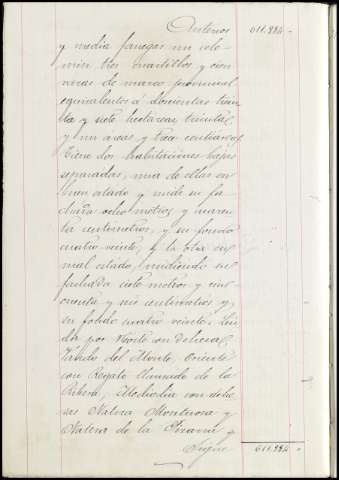 Anterior 611.984
y media fanegas un cele-
min tres cuartillos y cien
varas de marco provincial
equivalentes á doscientas trein
ta y siete hectareas, treinta
y un áreas, y trece centiareas
Tiene dos habitaciones bajas
separadas, una de ellas en
buen estado y mide su fa-
chada ocho metros y cuaren
ta centimetros, y su fondo
cuatro veinte; y la otra en
mal estado, midiendo su
fachada siete metros y cin-
cuenta y un centimetros y
su fondo cuatro veinte. Lin
da por Norte con dehesa
del Monte, Oriente
con Regato llamado de la
Ribera, Mediodia con dehe
sas Natera Monteros y
Natera de la y
Sigue 611.984